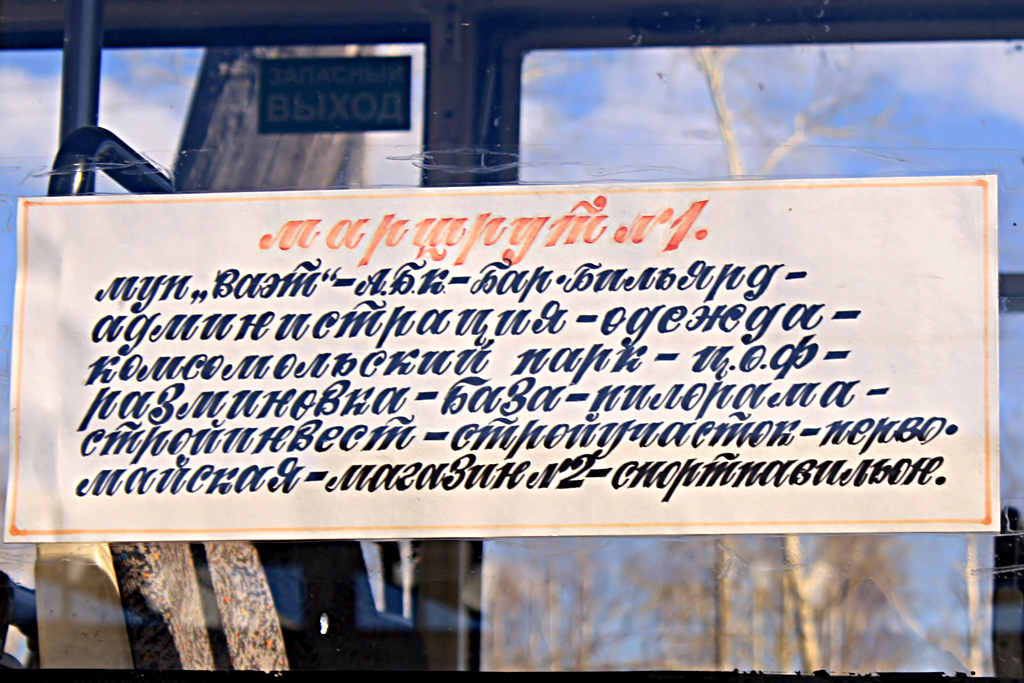 ЗАПАСНЫЙ
ВЫХОД
маршрут №1.
муп „ваэт“-А.Б.К-Бар·Бильярд-
администрация-одежда-
комсомольский парк-ц.о.ф-
разминовка-База-пилорама-
стройинвест-стройучасток-перво-
майская-магазин №2-спортпавильон.